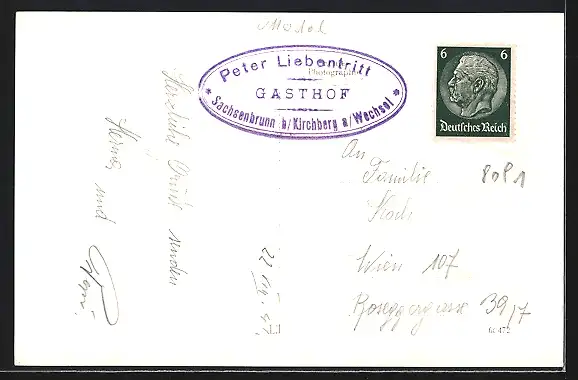 Peter Liebentritt
Photograph
GASTHOF
* Sachsenbrunn b/Kirchberg a/Wechsel *
6 6
Deutsches Reich
Herzliche Grüße senden
und
An
Familie
Koch
Wien 107
Roseggergasse 39/7
8081
64 472